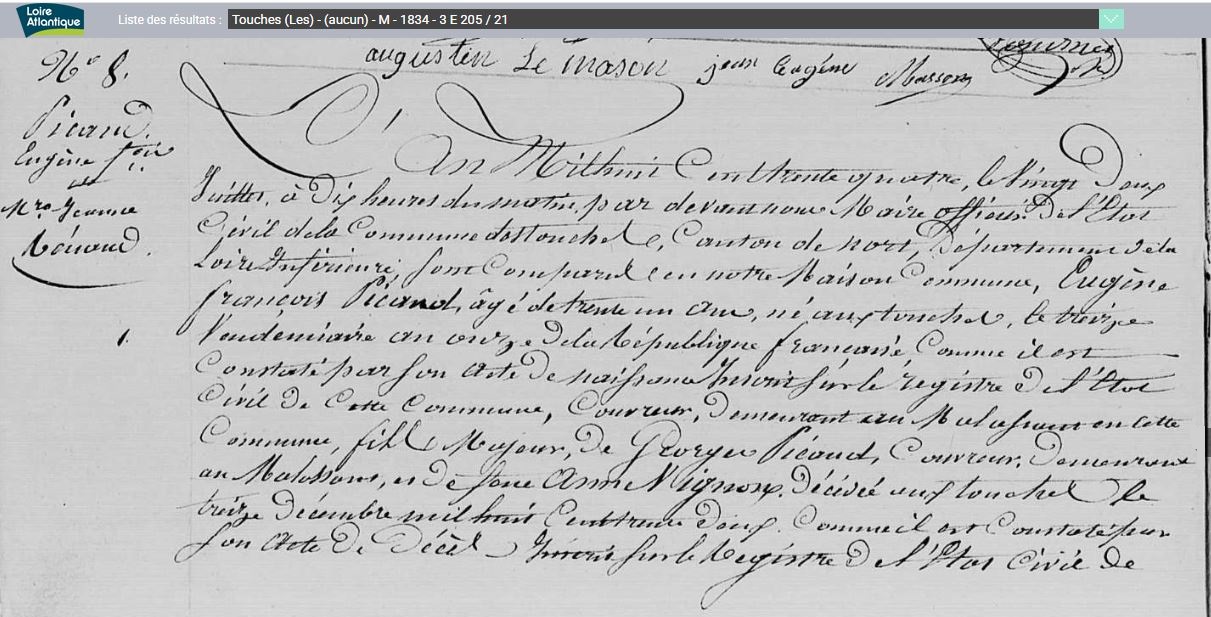 Loire
Atlantique
Liste des résultats :
Touches (Les) - (aucun) - M - 1834 - 3 E 205 / 21
augustin Le mason jean Eugène Masson
N.o 8.
Picaud
Eugène fois
et
M.re Jeanne
Rénaud.
1.
L'An Mil huit Cent trente quatre, le Vingt Deux
Juillet, à Dix heures du matin, par devant nous Maire officier De l'Etat
Civil de la Commune des touches, Canton de nort, Département de la
Loire Inférieure, sont Comparus en notre Maison Commune, Eugène
françois Picaud, âgé de trente un ans, né aux touches, le treize
Vendémiaire an onze De la République française, Comme il est
Constaté par son acte De naissance Inscrit sur le registre De l'Etat
Civil De Cette Commune, Couvreur, Demeurant au en cette
Commune, fils Majeur, De George Picaud, Couvreur, Demeurant
au et De feue Anne Mignon, Décédée aux touches le
treize Décembre mil huit Cent trente Deux, Comme il est Constaté par
son acte De Décès Inscrit sur le Registre De l'Etat Civil De